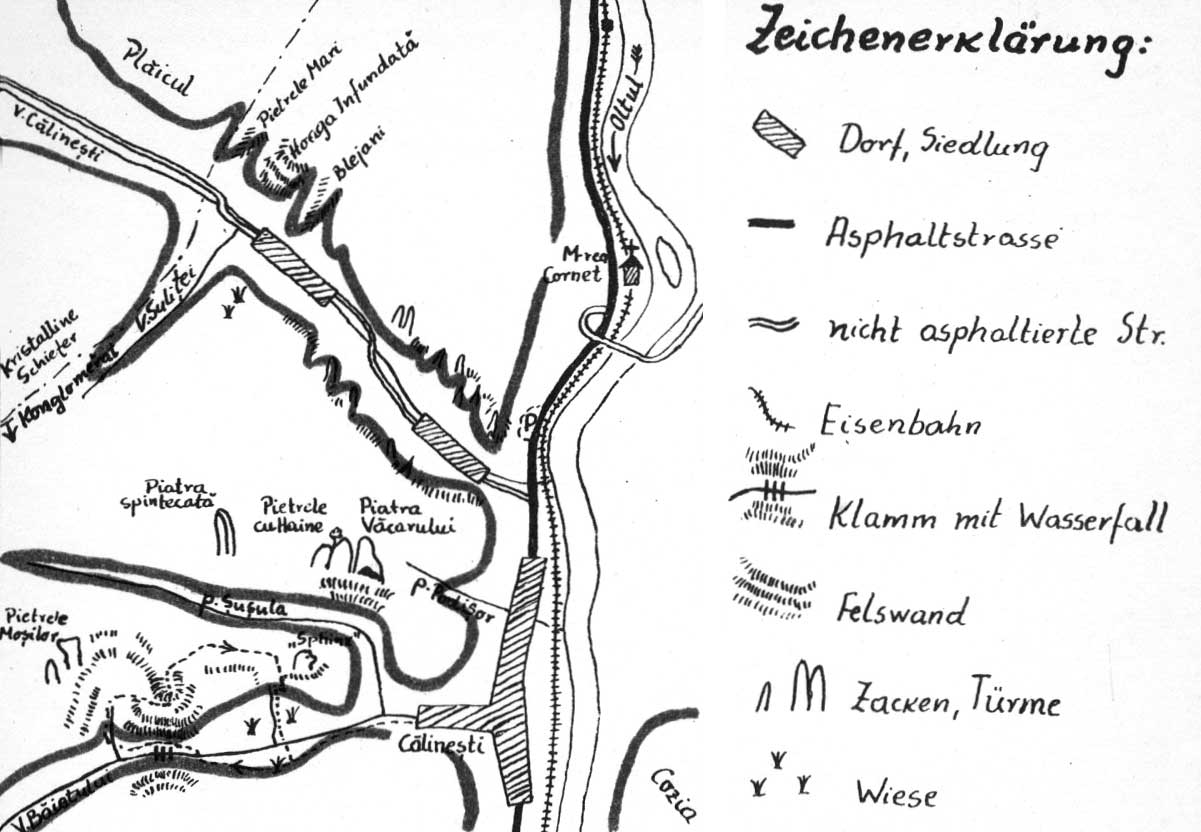 Plăicul
Pietrele Mari
Horiga Infundată
Blejani
V. Călinești
Oltul
M-rea
Cornet
V. Suliței
Kristalline
Schiefer
Konglomerat
P
Piatra
spintecată
Pietrele
cu Haine
Piatra
Văcarului
P. Șușula
Pietrele
Moșilor
"Sphinx"
Călinești
V. Băiatului
Cozia
Zeichenerklärung:
Dorf, Siedlung
Asphaltstrasse
nicht asphaltierte Str.
Eisenbahn
Klamm mit Wasserfall
Felswand
Zacken, Türme
Wiese